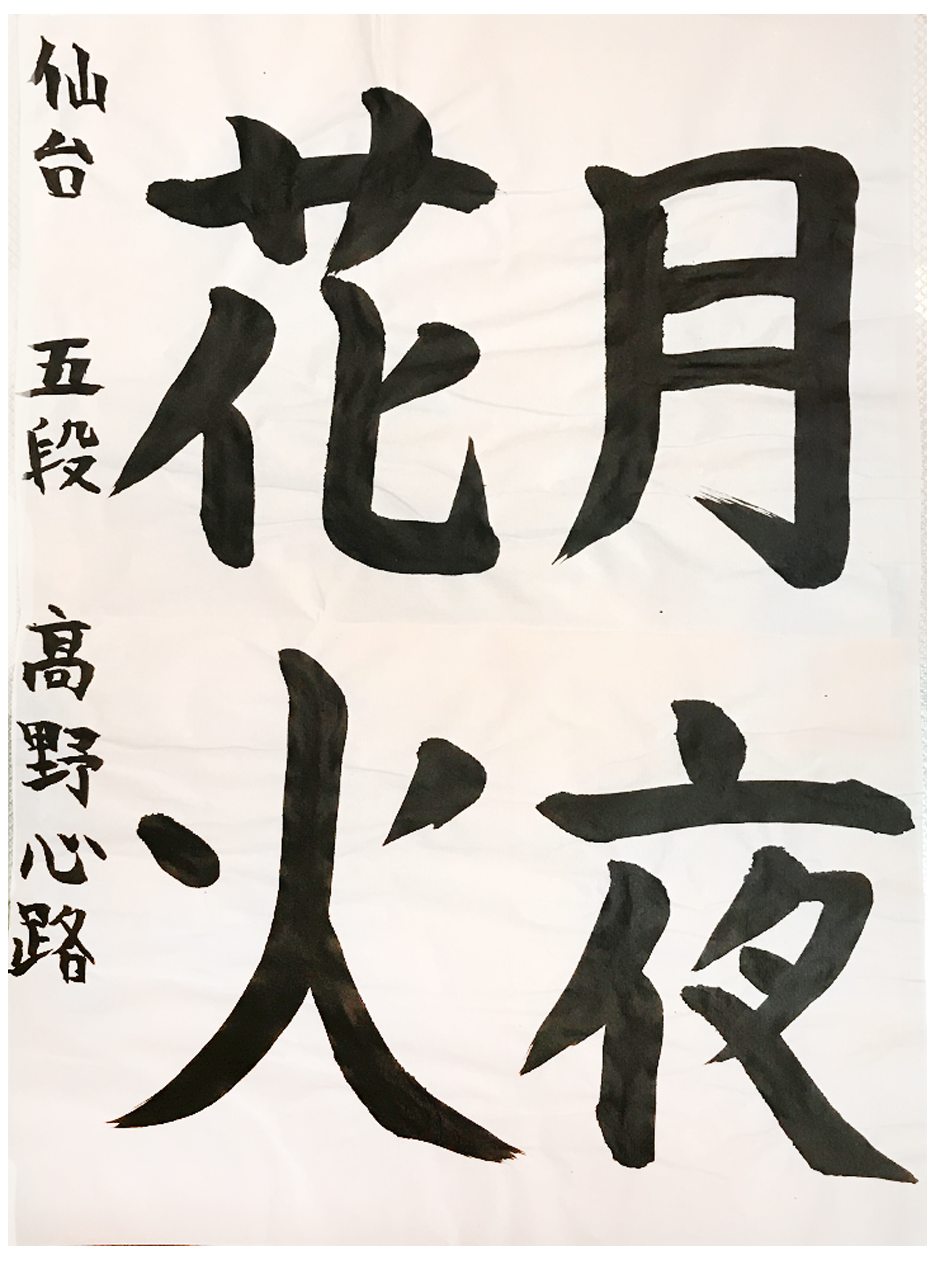 月夜
花火
仙台 五段 高野心路